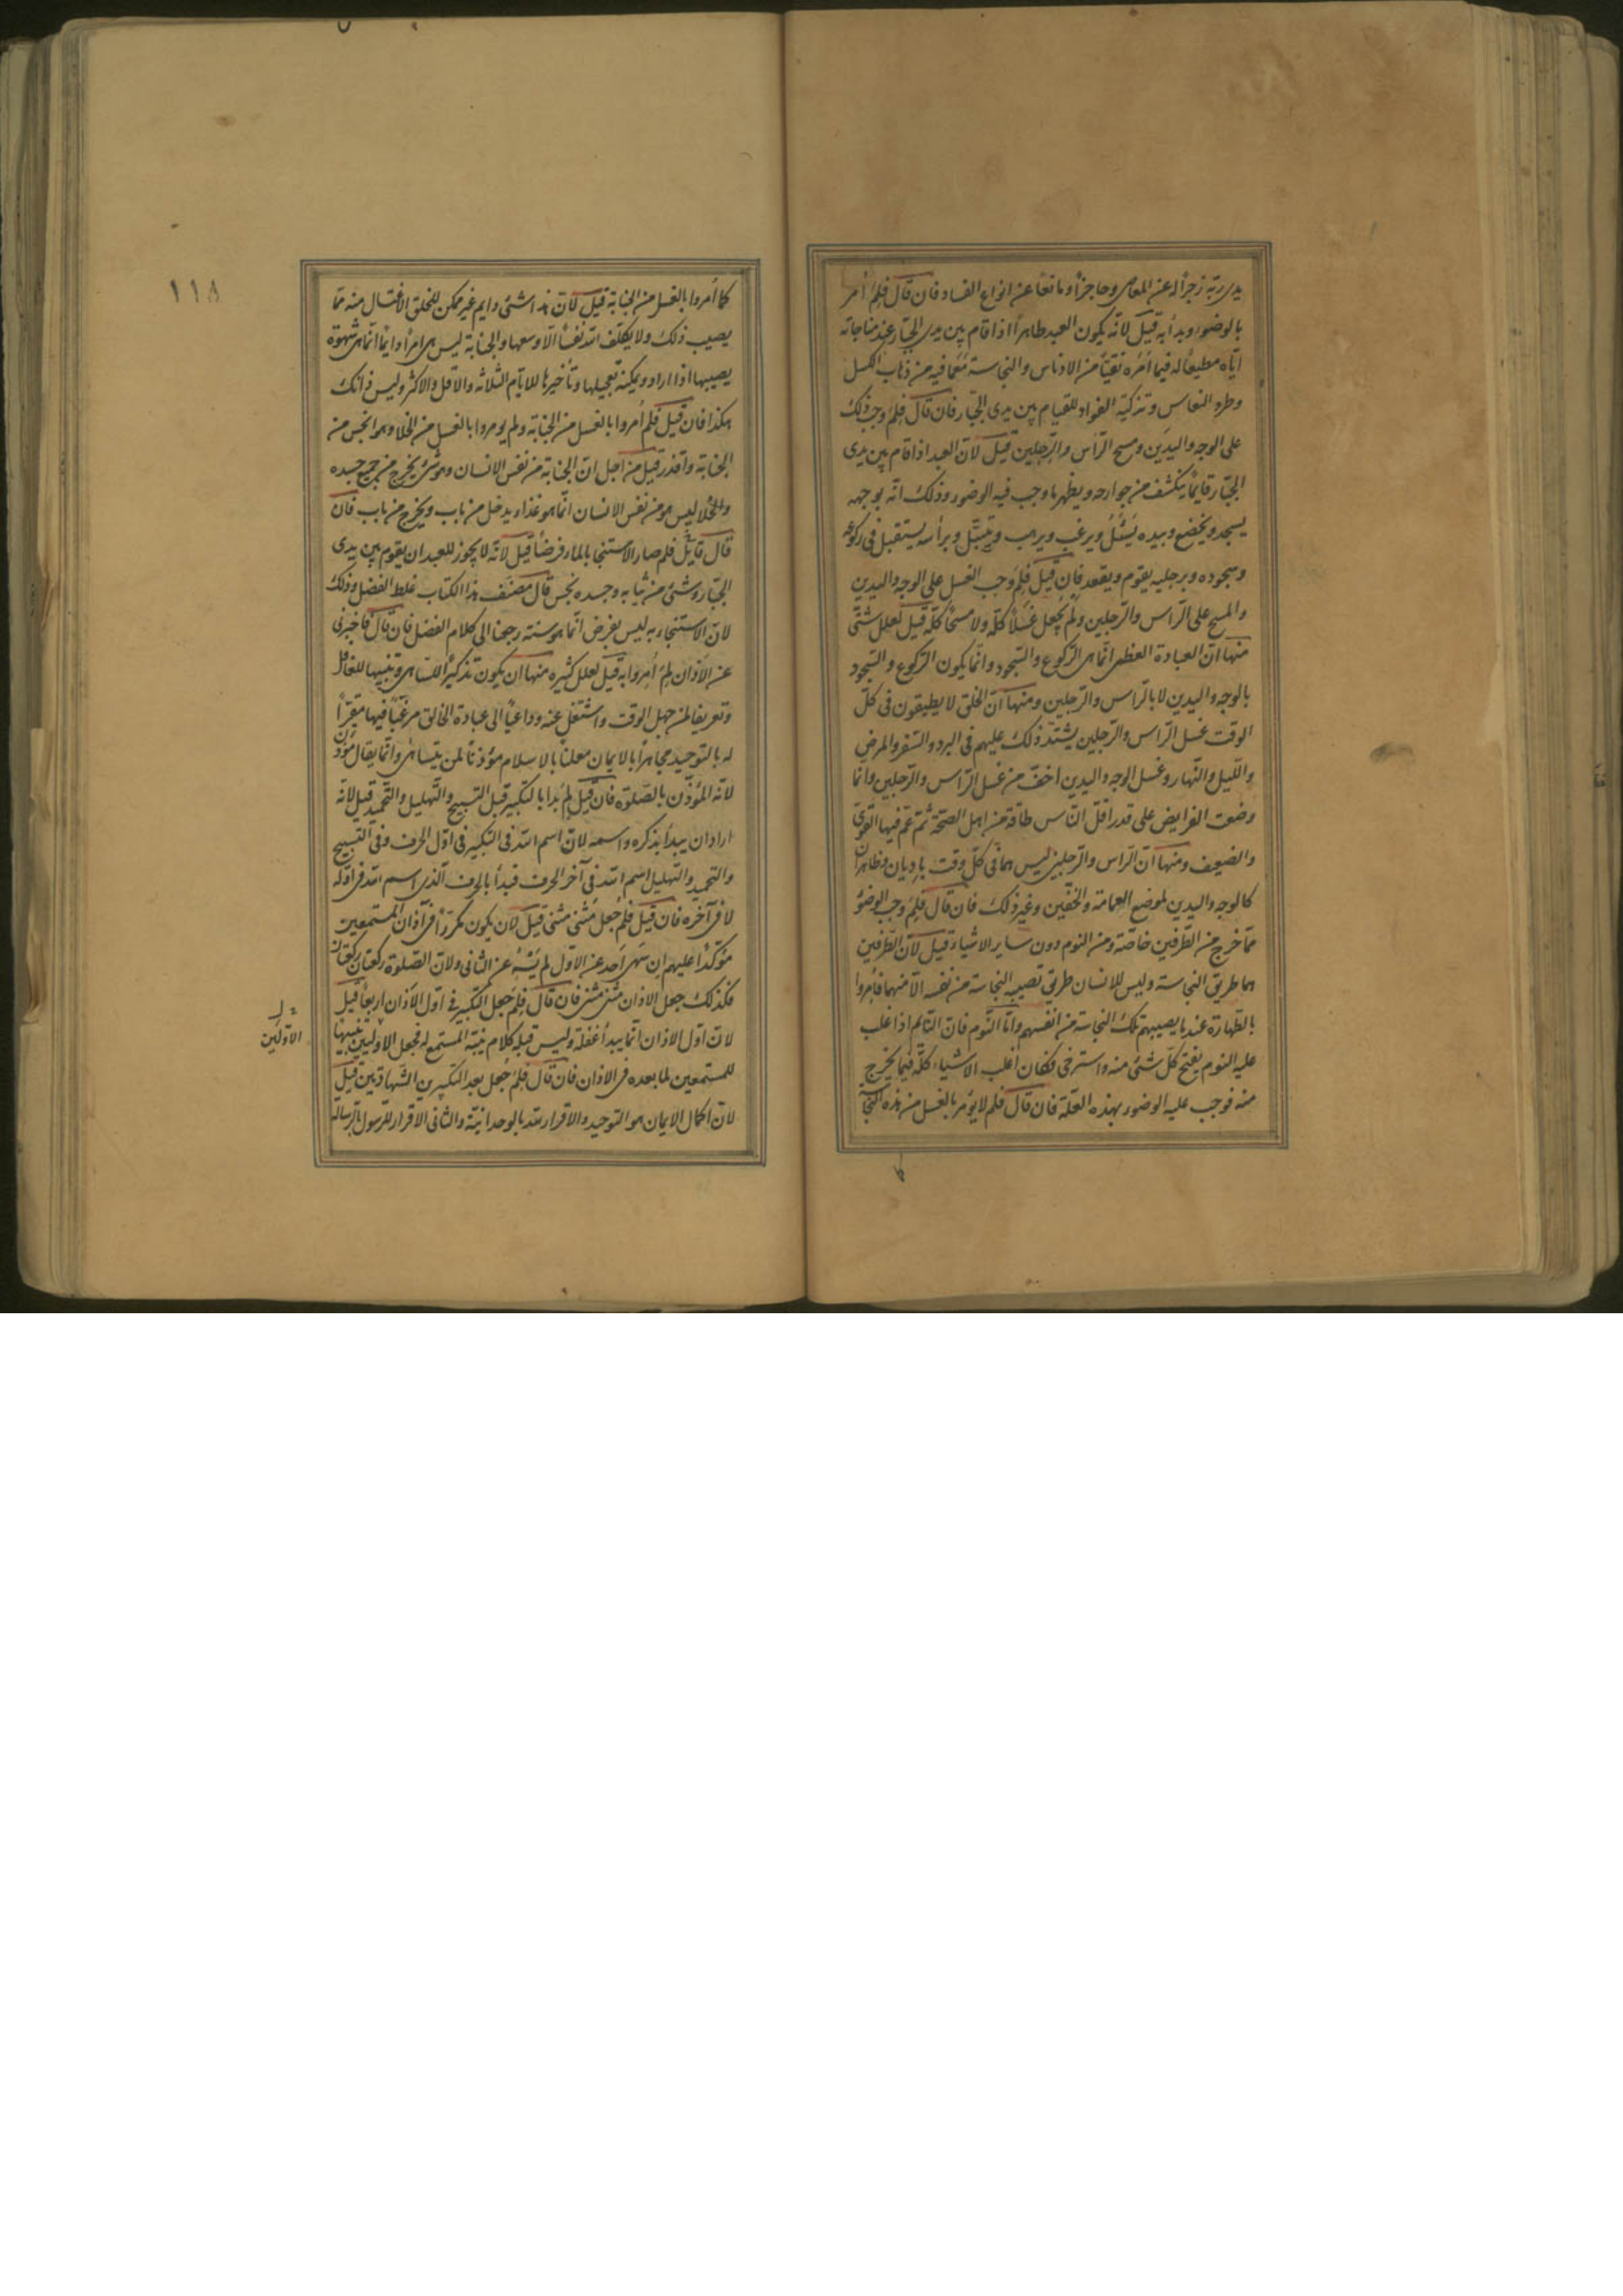 يدى ربّه زجراً له عن المعاصى وحاجزاً ومانعاً عن انواع الفساد فان قال فلِمَ أمر
بالوضوء وبدأ به قيل لانّه يكون العبد طاهراً اذا قام بين يدى الجبّار عند مناجاته
ايّاه مطيعاً له فيما أمَرَه نقيّاً من الادناس والنجاسة مَعَما فيه من ذهاب الكسل
وطرد النعاس وتزكية الفواد للقيام بين يدى الجبّار فان قال فلِمَ وجب ذلك
على الوجه واليدَين ومسح الرّاس والرّجلين قيل لانّ العبد اذا قام بين يدى
الجبّار قايماً ينكشف من جوارحه ويظهر ما وجب فيه الوضوء وذلك انّه بوجهه
يسجد ويخضع وبيده يَسْئَلُ ويرغب ويرهب ويَتَبَتَّل وبرأسه يستقبل فى ركوعه
وسجوده وبرجليه يقوم ويقعد فان قيل فلِمَ وَجب الغسل على الوجه واليدين
والمسح على الرّاس والرّجلين ولم يُجعل غَسلاً كلّه ولا مسحاً كلّه قيل لعلل شتّى
منها انّ العبادة العظمى انّما هى الرّكوع والسّجود وانّما يكون الرّكوع والسّجود
بالوجه واليدين لا بالرّاس والرّجلين ومنها انّ الخلق لا يطيقون فى كلّ
الوقت غسل الرّاس والرّجلين يشتدّ ذلك عليهم فى البرد والسّفر والمرض
واللّيل والنّهار وغسل الوجه واليدين اخفّ من غسل الرّاس والرّجلين وانّما
وضعت الفرايض على قدر اقلّ النّاس طاقة من اهل الصّحّة ثمّ عمّ فيها القوىّ
والضعيف ومنها انّ الرّاس والرّجلين ليس هما فى كلّ وقت باديان وظاهران
كالوجه واليدين لموضع العمامة والخفّين وغير ذلك فان قال فلِمَ وجب الوضوُ
ممّا خرج من الطّرفين خاصّة ومن النوم دون ساير الاشياء قيل لانّ الطّرفين
هما طريق النجاسة وليس للانسان طريق تصيبه النجاسة من نفسه الّا منهما فأُمروا
بالطّهارة عند ما يصيبهم تلك النجاسة من انفسهم وامّا النّوم فانّ النّايم اذا غلب
عليه النوم يفتح كلّ شىء منه واسترخى فكان أغلب الاشياء كلّه فيما يخرج
منه فوجب عليه الوضوء بهذه العلّة فان قال فلم لا يؤمر بالغسل من هذه النجاسة
١١٨
كما أُمروا بالغسل من الجنابة قيل لانّ هذا شىء دايم غير ممكن للخلق الاغتسال منه ممّا
يصيب ذلك ولا يكلّف اللّه نفساً الّا وسعها والجنابة ليس هى امراً دايماً انّما هى شهوة
يصيبها اذا اراد ويمكنه تعجيلها وتأخيرها للايّام الثلاثة والاقل والاكثر وليس ذانك
هكذا فان قيل فلِمَ أُمروا بالغسل من الجنابة ولم يومروا بالغسل من الخلا وهو انجس من
الجنابة واقذر قيل من اجل انّ الجنابة من نفس الانسان وهو شىء يخرج من جميع جسده
والخلا ليس هو من نفس الانسان انّما هو غذاء يدخل من باب ويخرج من باب فان
قال قايل فلم صار الاستنجا بالماء فرضاً قيل لانّه لا يجوز للعبد ان يقوم بين يدى
الجبّار وشىء من ثيابه وجسده نجس قال مصنّف هذا الكتاب غلط الفضل وذلك
لانّ الاستنجاء به ليس بفرض انّما هو سنته رجعنا الى كلام الفضل فان قال فاخبرنى
عن الاَذان لِمَ أُمروا به قيل لعلل كثيره منها ان يكون تذكيراً للنّساهى وتنبيهاً للغافل
وتعريفا لمن جهل الوقت واشتغل عنه وداعياً الى عبادة الخالق مرغّباً فيها مقرّاً
له بالتوحيد مجاهراً بالايمان معلناً بالاسلام مؤذناً لمن يتساهى وانّما يقال مؤذّن
لانّه المؤذّن بالصّلوة فان قيل لِمَ بدأ بالتكبير قبل التسبيح والتّهليل والتّحميد قيل لانّه
اراد ان يبدأ بذكره واسمه لانّ اسم اللّه فى التكبير فى اوّل الحرف وفى التّسبيح
والتّحميد والتّهليل اسم اللّه فى آخر الحرف فبدأ بالحرف الّذى اسم اللّه فى اوّله
لا فى آخره فان قيل فلِمَ جُعل مَثنى مَثنى قيل لان يكون مكرّراً فى آذان المستمعين
مؤكّداً عليهم ان سَهى اَحد عن الاوّل لم يَسْهُ عن الثانى ولانّ الصّلوة ركعتان ركعتان
فكذلك جعل الاذان مثنى مثنى فان قال فلِمَ جعل التكبير فى اوّل الاَذان اربعاً قيل
لانّ اوّل الاذان انّما يبدأ غفلة وليس قبله كلام ينبّه المستمع له فجعل الاوليين تنبيهاً
الاوّلَين
للمستمعين لما بعده فى الاذان فان قال فلِمَ جُعل بعد التكبيرين الشّهادتين قيل
لانّ اكمال الايمان هو التوحيد والاقرار للّه بالوحدانيّة والثانى الاقرار للرّسول بالرّسالة